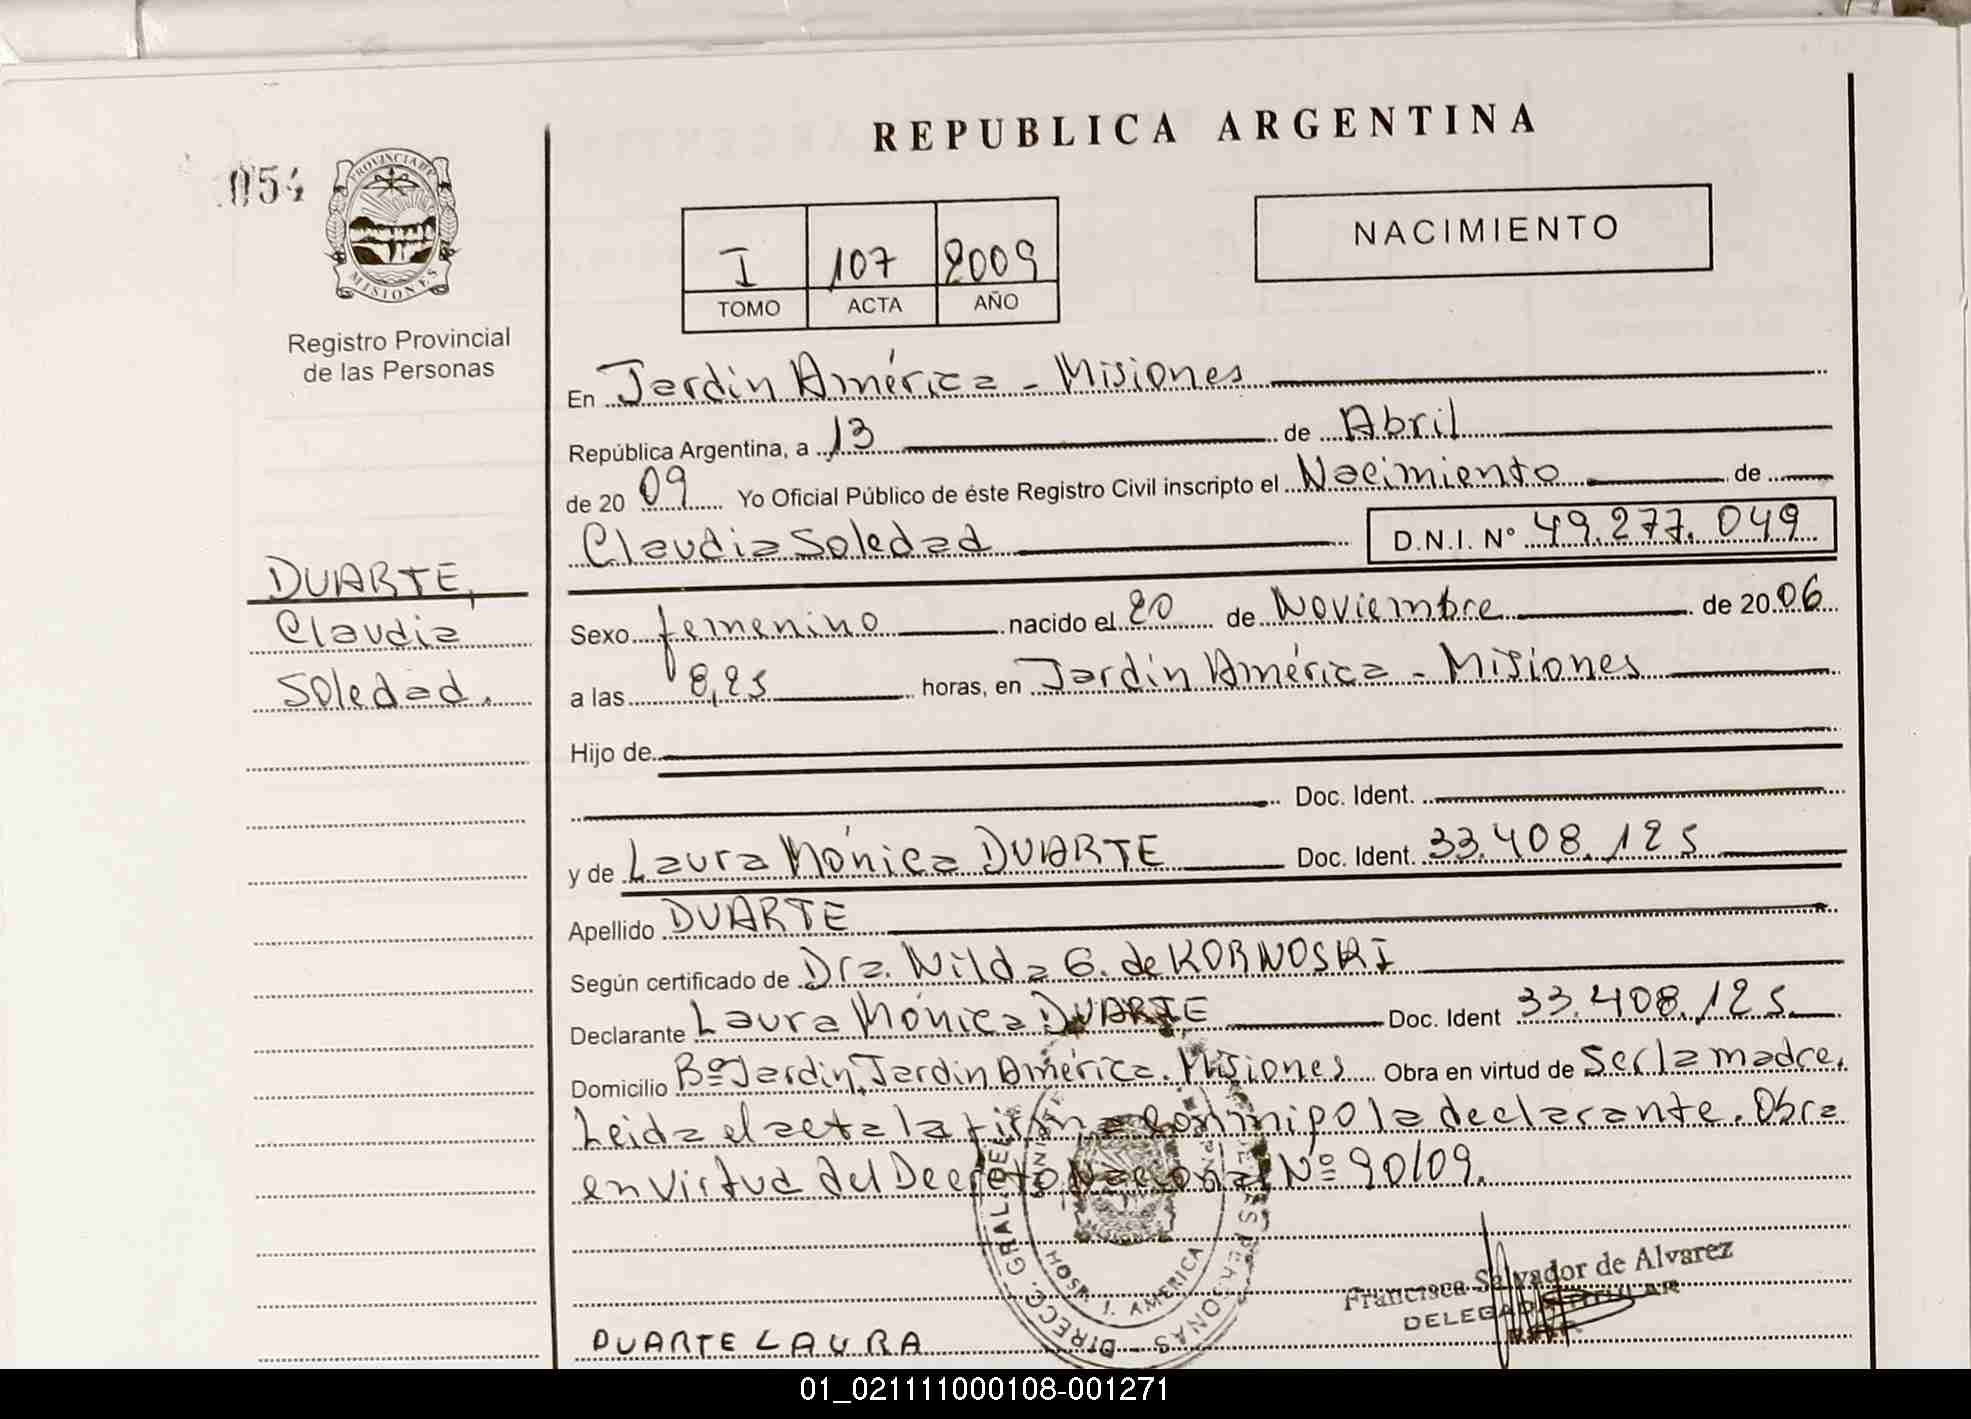 REPUBLICA ARGENTINA
054
PROVINCIA DE
MISIONES
Registro Provincial
de las Personas
NACIMIENTO
I 107 2009
TOMO ACTA AÑO
En Jardín América - Misiones
República Argentina, a 13 de Abril
de 2009 Yo Oficial Público de éste Registro Civil inscripto el Nacimiento de
Claudia Soledad D.N.I. N° 49.277.049
DUARTE,
Claudia
Soledad.
Sexo femenino nacido el 20 de Noviembre de 2006
a las 8,25 horas, en Jardín América - Misiones
Hijo de
Doc. Ident.
y de Laura Mónica DUARTE Doc. Ident. 33.408.125
Apellido DUARTE
Según certificado de Dra. Nilda G. de KORNOSKI
Declarante Laura Mónica DUARTE Doc. Ident 33.408.125
Domicilio Bº Jardín, Jardín América. Misiones Obra en virtud de Ser la madre.
Leida el acta la firma conmigo la declarante. Obra
en virtud del Decreto Nacional Nº 90/09.
DIRECC. GRAL. DEL
PERSONAS
HOSP. J. AMERICA
Francisca Salvador de Alvarez
DELEGADA TITULAR
DUARTE LAURA
01_021111000108-001271